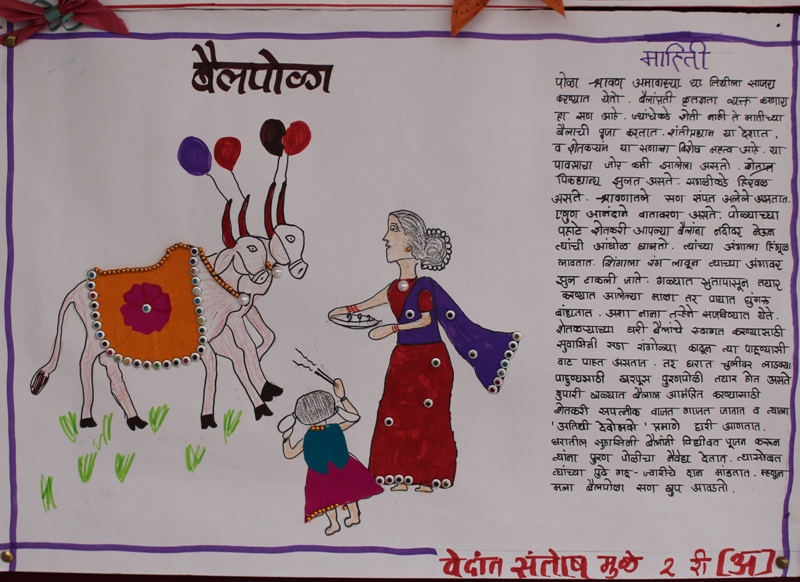 बैलपोळा
माहिती
पोळा श्रावण अमावस्या या तिथीला साजरा
करण्यात येतो. बैलांप्रती कृतज्ञता व्यक्त करणारा
हा सण आहे. ज्यांचेकडे शेती नाही ते मातीच्या
बैलाची पूजा करतात. शेतीप्रधान या देशात,
व शेतकऱ्यांत या सणाला विशेष महत्त्व आहे. या
पावसाचा जोर कमी झालेला असतो. शेतात
पिकधान्य झुलत असते. सगळीकडे हिरवळ
असते. श्रावणातले सण संपत आलेले असतात.
एकुण आनंदाचे वातावरण असते. पोळ्याच्या
पहाटे शेतकरी आपल्या बैलांना नदीवर नेऊन
त्यांची आंघोळ घालतो. त्यांच्या अंगाला हिंगूळ
लावतात. शिंगाला रंग लावून त्याच्या अंगावर
झुल टाकली जाते. गळ्यात सुतापासून तयार
करण्यात आलेल्या माळा तर पायात घुंगरू
बांधतात. अशा नाना तऱ्हेने सजविण्यात येते.
शेतकऱ्याच्या घरी बैलांचे स्वागत करण्यासाठी
सुवासिनी सडा रांगोळ्या काढून त्या पाहुण्याची
वाट पाहत असतात. तर घरात चुलीवर लाडक्या
पाहुण्यासाठी खरपूस पुरणपोळी तयार होत असते
दुपारी बैलाला आमंत्रित करण्यासाठी
शेतकरी सपत्नीक वाजत गाजत जातात व त्याला
'अतिथी देवोभवो' प्रमाणे घरी आणतात.
घरातील सुवासिनी बैलांनी विधीवत पूजन करून
त्यांना पुरण पोळीचा नैवेद्य देतात. त्यासोबत
त्यांच्या पुढे गहू-ज्वारीचे दान मांडतात. म्हणून
मला बैलपोळा सण खुप आवडतो.
वेदांत संतोष मुळे २ री [अ]